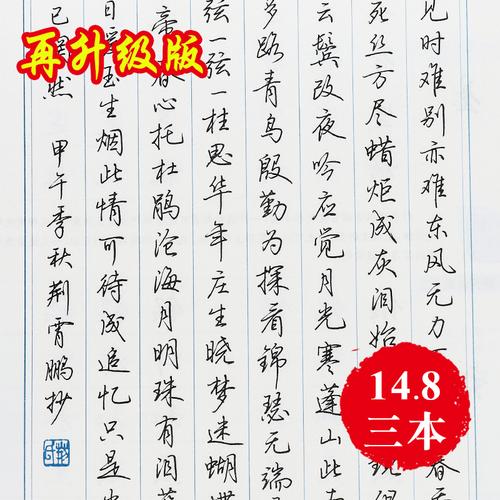 再升级版
见时难别亦难东风无力
死丝方尽蜡炬成灰泪始
云鬓改夜吟应觉月光寒蓬山此
多路青鸟殷勤为探看锦瑟无端
弦一弦一柱思华年庄生晓梦迷蝴
帝春心托杜鹃沧海月明珠有泪
日暖玉生烟此情可待成追忆只是
已惘然 甲午季秋荆霄鹏抄
14.8
三本